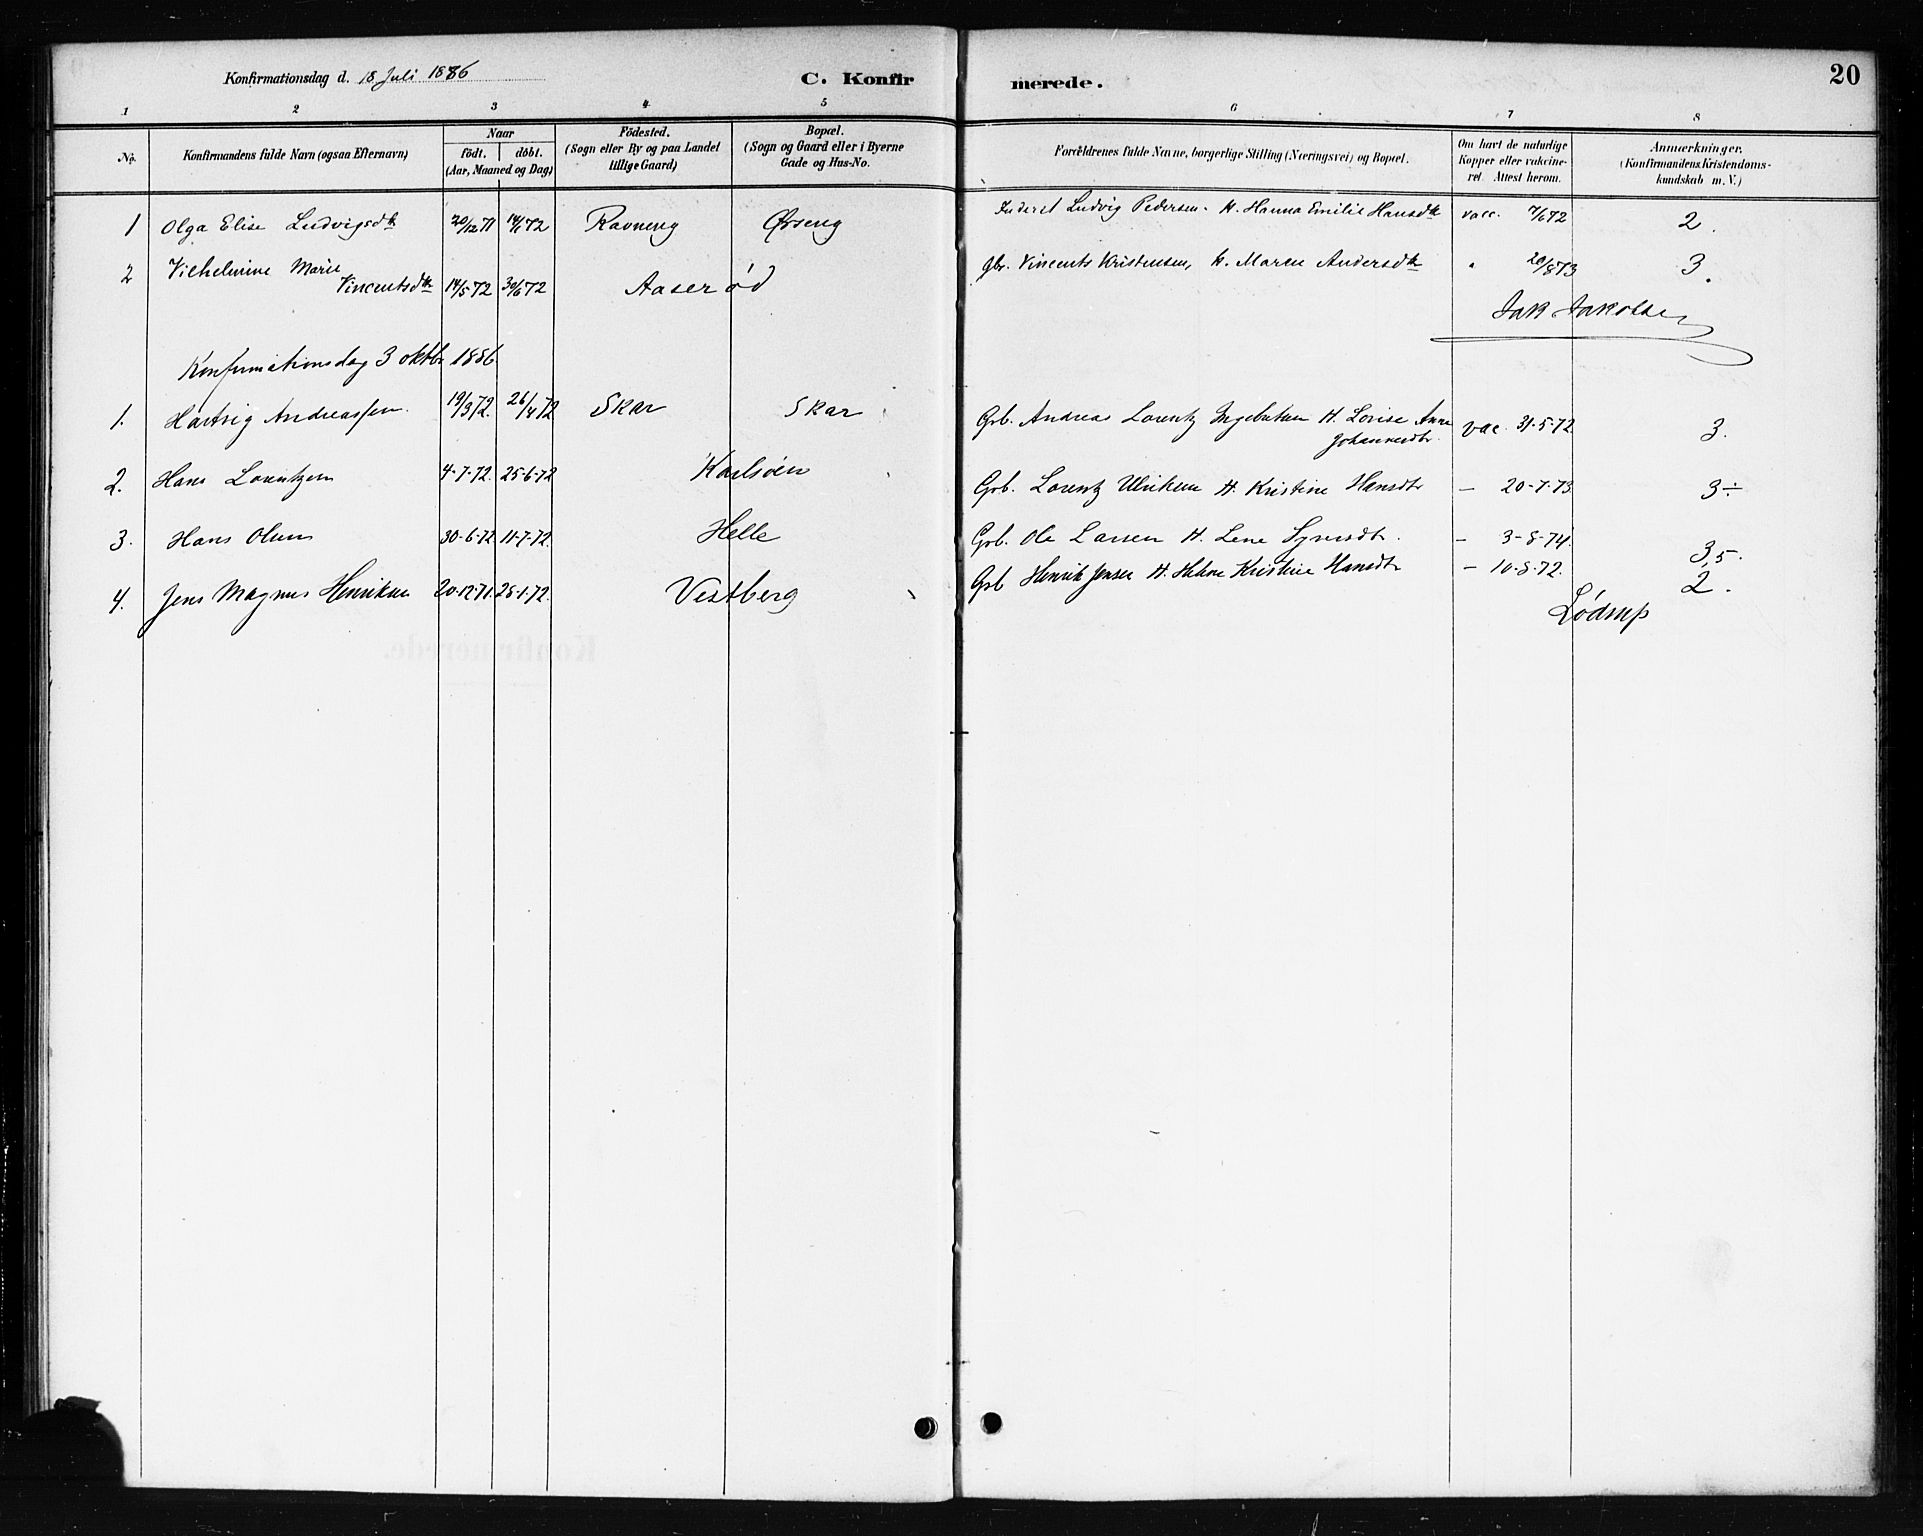 Konfirmationsdag d. 18 Juli 1886 C. Konfirmerede. 20
1 2 3 4 5 6 7 8
No. Konfirmandens fulde Navn (ogsaa Efternavn) Naar födt. döbt. (Aar, Maaned og Dag) Födested. (Sogn eller By og paa Landet tillige Gaard) Bopæl. (Sogn og Gaard eller i Byerne Gade og Hus-No. Forældrenes fulde Navne, borgerlige Stilling (Næringsvei) og Bopæl. Om havt de naturlige Kopper eller vakcineret. Attest herom. Anmærkninger. (Konfirmandens Kristendomskundskab m. V.)
1 Olga Elise Ludvigsdtr 20/12 71 14/1 72 Ravneng Ørseng Inderst Ludvig Pedersen. H. Hanna Emilie Hansdtr vacc. 7/6 72 2.
2 Vilhelmine Marie Vincentsdtr 14/5 72 30/6 72 Aaserød gbr. Vincents Kristensen, H. Maren Andersdtr " 20/8 73 3.
Jak Jakobsen
Konfirmationsdag 3 oktbr 1886
1. Hartvig Andreassen 19/3 72. 26/4 72 Skar Skar Grb. Andreas Lorentz Ingebretsen H. Lovise Anne Johannesdtr. vac. 31-5-72. 3.
2. Hans Lorentzen 4-7-72. 25-6-72 Karlsöen Grb. Lorentz Ulriksen H. Kristine Hansdtr — 20-7-73 3÷
3. Hans Olsen 30-6-72 11-7-72. Helle Grb. Ole Larsen H. Lene Syversdtr. — 3-8-74. 3,5.
4. Jens Magnus Henriksen 20-12-71. 25-1-72. Vestberg Grb Henrik Jensen H. Helene Kristine Hansdtr — 10-8-72. 2.
Lödrup